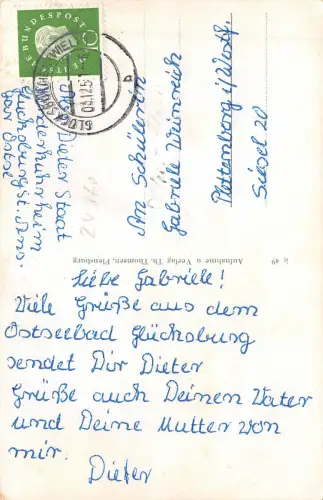 Liebe Gabriele!
Viele Grüße aus dem
Ostseebad Glücksburg
sendet Dir Dieter
Grüße auch Deinen Vater
und Deine Mutter von
mir.
Dieter
An Schülerin
Gabriele Weinreich
Plettenberg i/Westf.
Siesel 20
Dieter Staat
Kinderkurheim
Glücksburg
DEUTSCHE BUNDESPOST
10
GLÜCKSBURG
Aufnahme u. Verlag Th. Thomsen, Flensburg
K 49